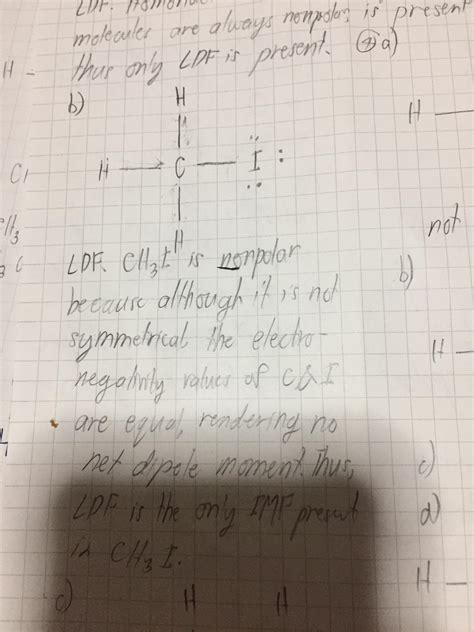 LDF. Homonu
molecules are always nonpolar, is present
thus only LDF is present. ④a)
H –
b)
H
H —
H C I :
Cl
H
not
LDF. CH3I is nonpolar
b)
because although it is not
symmetrical the electro-
H –
negativity values of C & I
are equal, rendering no
net dipole moment. Thus,
c)
LDF is the only IMF present
d)
in CH3I.
H –
c)
H H